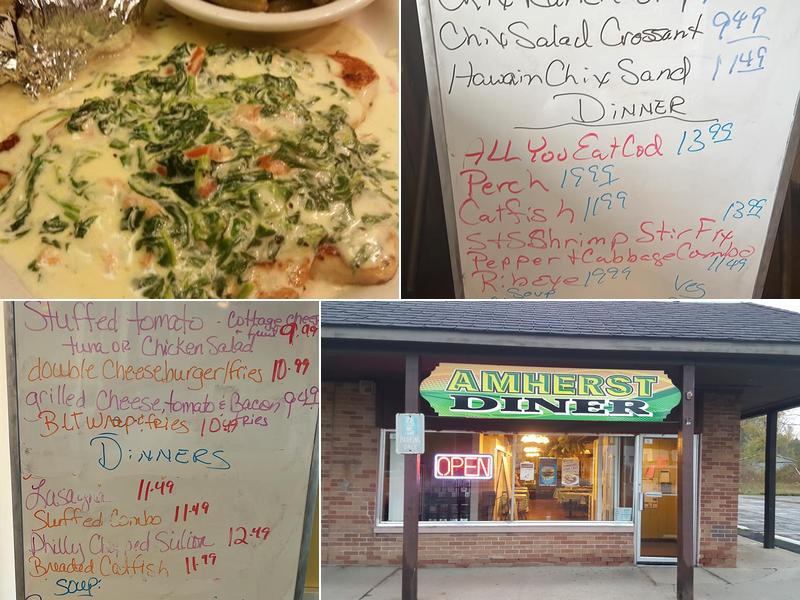 Chix Salad Crossant 9.49
Hawain Chix Sand 11.49
DINNER
ALL You Eat Cod 13.99
Perch 19.99
Catfish 11.99
S+S Shrimp Stir Fry 13.99
Pepper + Cabbage Combo 11.49
Ribeye 19.99
Soup Veg
Stuffed tomato - Cottage chees
+ fruit 9.99
tuna or Chicken Salad
double Cheeseburger/fries 10.99
grilled Cheese, tomato & Bacon 9.49
fries
BLT Wrap & fries 10.49
DINNERS
Lasagna 11.49
Stuffed Combo 11.49
Philly Chopped Sirloin 12.49
Breaded Catfish 11.99
Soup:
AMHERST
DINER
OPEN